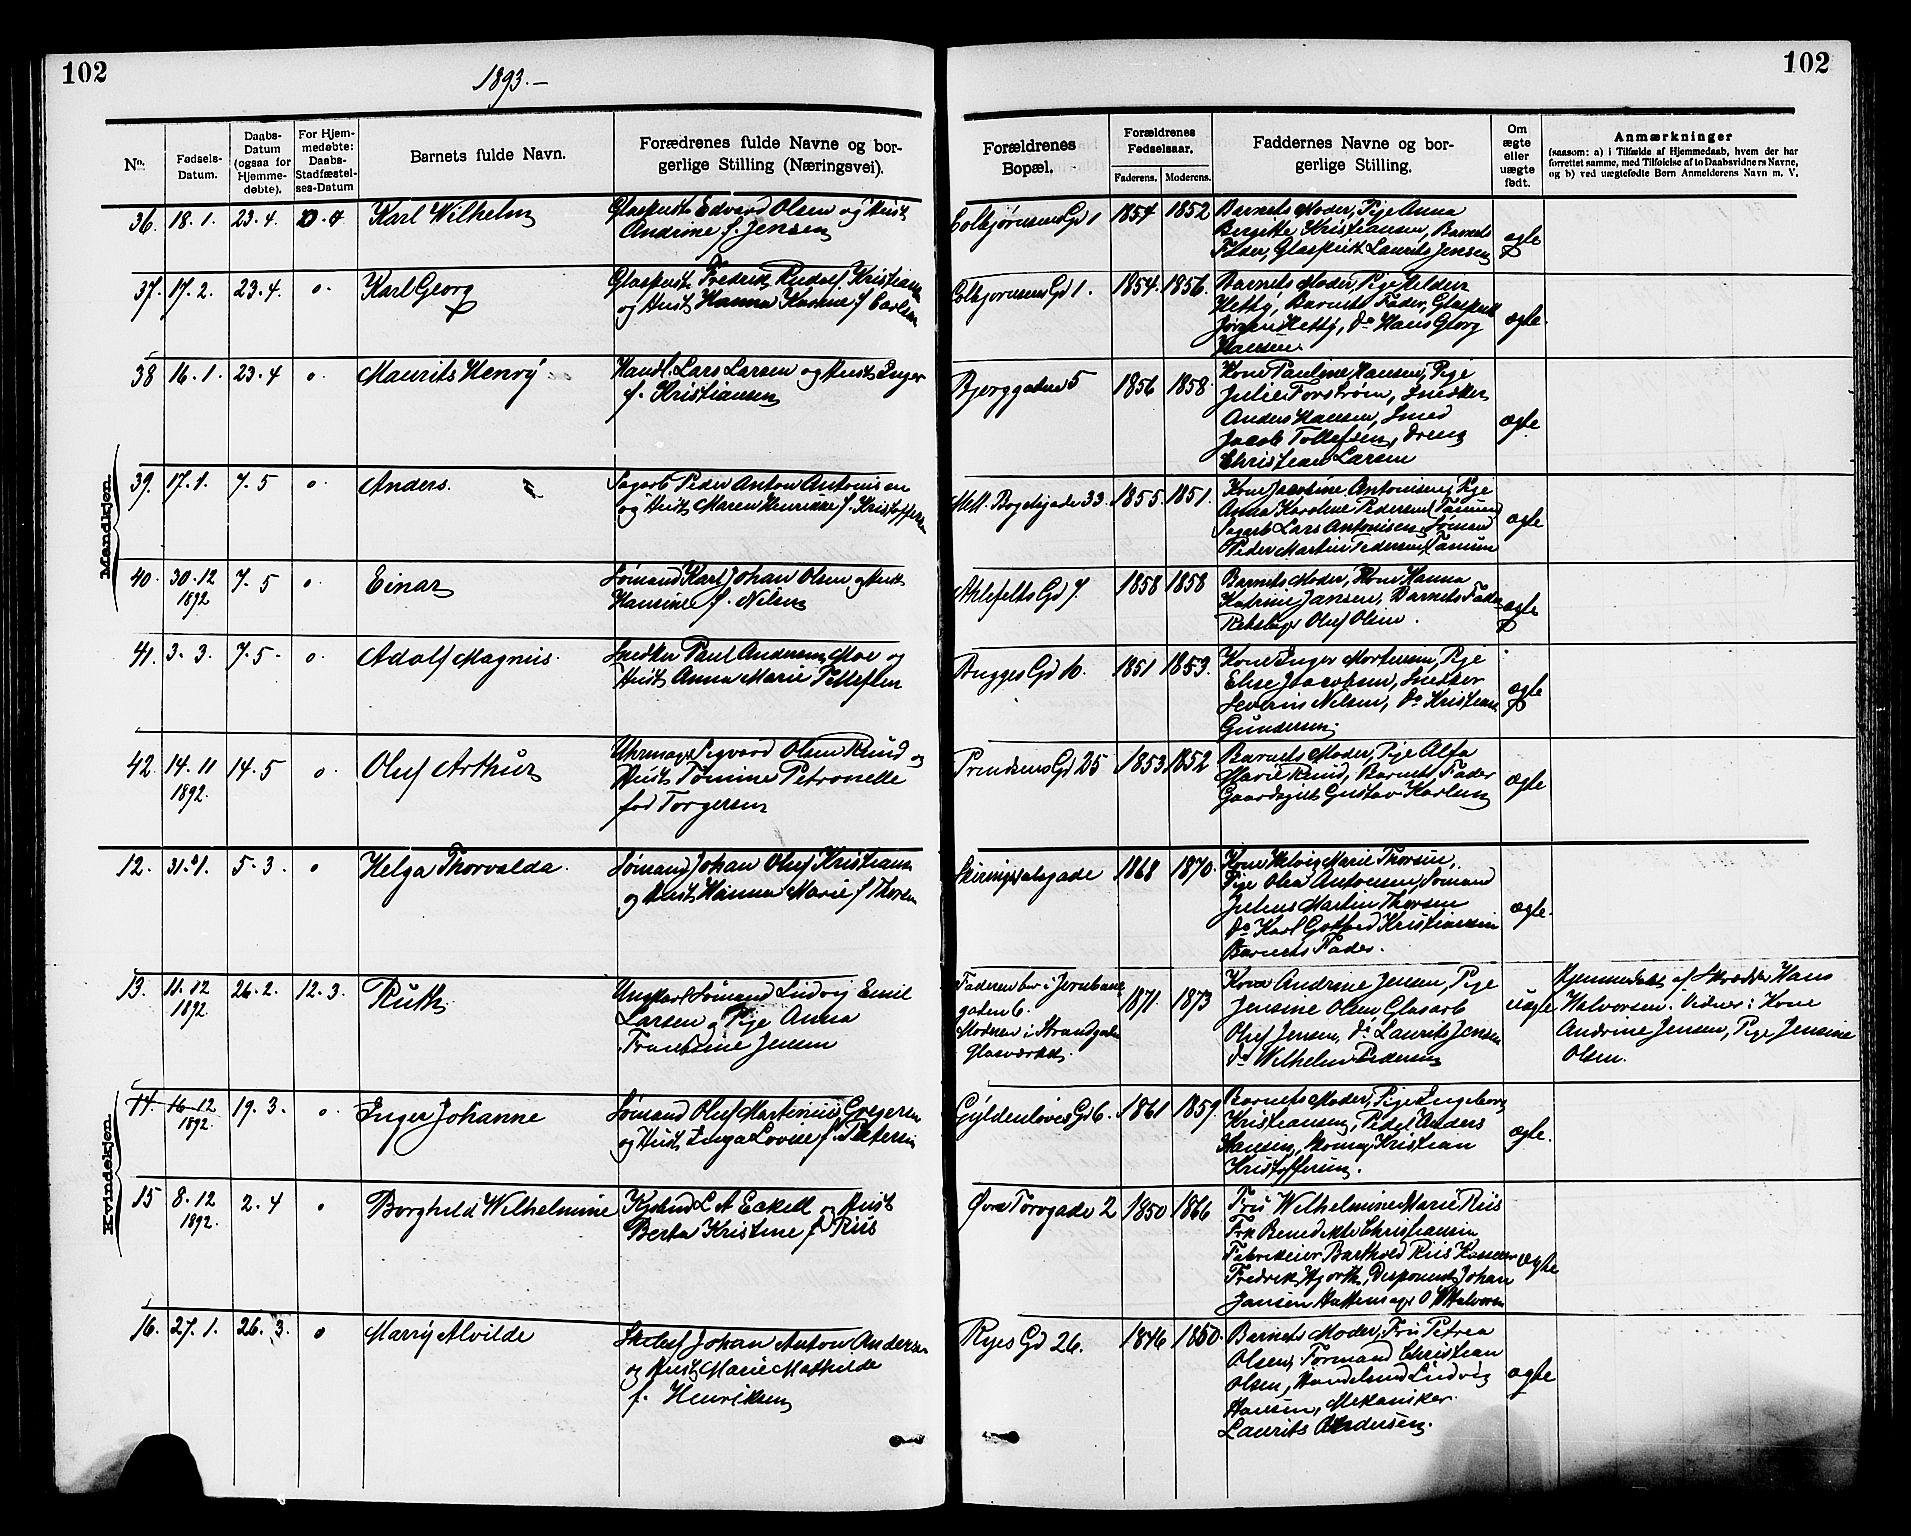 102
1893.-
102
No. Fødsels-Datum. Daabs-Datum (ogsaa for Hjemme-døbte). For Hjem-medøbte: Daabs-Stadfæstel-ses-Datum Barnets fulde Navn. Forædrenes fulde Navne og bor-gerlige Stilling (Næringsvei). Forældrenes Bopæl. Forældrenes Fødselsaar. Faderens. Moderens. Faddernes Navne og bor-gerlige Stilling. Om ægte eller uægte født. Anmærkninger
(saasom: a) i Tilfælde af Hjemmedaab, hvem der har
forrettet samme, med Tilføielse af to Daabsvidners Navne,
og b) ved uægtefødte Børn Anmelderens Navn m. V.
Mandkjøn.
36. 18.1. 23.4. Karl Wilhelm
Glaspust Edvard Olsen og Hust
Andrine f. Jensen
Colbjørnsens Gd 1 1854 1852
Barnets Moder, Pige Anna
Birgitte Kristiansen, Barnets
Fader, Glaspust Laurits Jensen
ægte
37. 17.2. 23.4. o. Karl Georg
Glaspust Frederik Rudolf Kristiansen
og Hust Hanna Karine f. Carlsen
Colbjørnsens Gd 1. 1854. 1856.
Barnets Moder, Pige
Hetty, Barnets Fader, Glaspust
Jørgen Hetty, Do Hans Georg
Hansen.
ægte.
38 16.1. 23.4 o. Maurits Henry
Handl. Lars Larsen og Hust Inger
f. Kristiansen
Bjerggaden 5 1856 1858.
Kone Pauline Hansen, Pige
Julie Forstrøm, Snedker
Anders Hansen, Smed
Jacob Tollefsen, Dreng
Christian Larsen
ægte.
39. 17.1. 7.5 o. Anders.
Sagarb Peder Anton Antonisen
og Hust Maren Henrikke f. Kristoffersen
Mell. Bøgelsgade 33. 1855. 1851.
Kone Jacobine Antonisen, Pige
Anna Karoline Pedersen (Tanum)
Sagarb Lars Antonisen, Sømand
Peder Martin Pedersen, Tanum
ægte
40. 30.12 1892 7.5 o. Einar
Sømand Karl Johan Olsen og Hust
Hansine f. Nilsen
Ahlefelts Gd 7 1858 1858
Barnets Moder, Kone Hanna
Katrine Jansen, Barnets Fader
Rebslag Oluf Olsen.
ægte
41. 3.3. 7.5. o. Adolf Magnus.
Snedker Paul Andersen Moe og
Hust Anna Marie Tollefsen
Brygges Gd 10. 1851 1853.
Kone Inger Mortensen, Pige
Elise Jacobsen, Snedker
Severin Nilsen, Do Kristian
Gundersen.
ægte
42. 14.11 1892. 14.5 o. Oluf Arthur
Uhrmager Sigvard Olsen Ruud og
Hust Tomine Petronelle
fød Torgersen
Prindsens Gd 25 1853. 1852
Barnets Moder, Pige Alfa
Marie Ruud, Barnets Fader
Gaardsgut Gustav Karlsen
ægte
Kvindekjøn.
12. 31.1. 5.3 o Helga Thorvalda.
Sømand Johan Oluf Kristiansen
og Hust Hanna Marie f Thorsen
Skiringssalsgade 1868 1870.
Kone Helvig Marie Thorsen,
Pige Olea Antonsen, Sømand
Julius Martin Thorsen
Do Karl Gotfred Kristiansen
Barnets Fader.
ægte.
13. 11.12 1892. 26.2. 12.3. Ruth
Ungkarl Sømand Ludvig Emil
Larsen og Pige Anna
Frantsine Jensen
Faderen bor i Jernbane
gaden 6.
Moderen i Strandgaden
Glasværket. 1871. 1873
Kone Andrine Jensen, Pige
Jensine Olsen Glasarb
Oluf Jensen, Do Laurits Jensen
Do Wilhelm Pedersen
uægte
Hjemmedøbt af Skrædder Hans
Halvorsen. Vidner: Kone
Andrine Jensen, Pige Jensine
Olsen.
14. 16.12 1892. 19.3. o. Inger Johanne
Sømand Oluf Martinius Gregersen
og Hust Inga Lovise f. Petersen
Gyldenløves Gd 6. 1861 1859.
Barnets Moder, Pige Ingeborg
Kristiansen, Anders
Hansen, Kristian
Kristoffersen.
ægte.
15 8.12 1892. 2.4 o Borghild Wilhelmine
Kjøbmd L A Eckell og Hust
Berta Kristine f. Riis
Øvre Torvgade 2 1850 1866
Fru Wilhelmine Marie Riis
Frk Benedikte Christiansen
Fabrikeier Barthold Riis
Fredrik Hjorth, Disponent Johan
Jansen O Halvorsen
ægte
16. 27.1. 26.3. o Marry Alvilde
Johan Anton Andersen
og Hust Marie Mathilde
f. Henriksen
Ryes Gd 26. 1846 1850.
Barnets Moder, Fru Petrea
Olsen, Formand Christian
Olsen, Handelsmd Ludvig
Hansen, Mekaniker
Laurits Andersen.
ægte